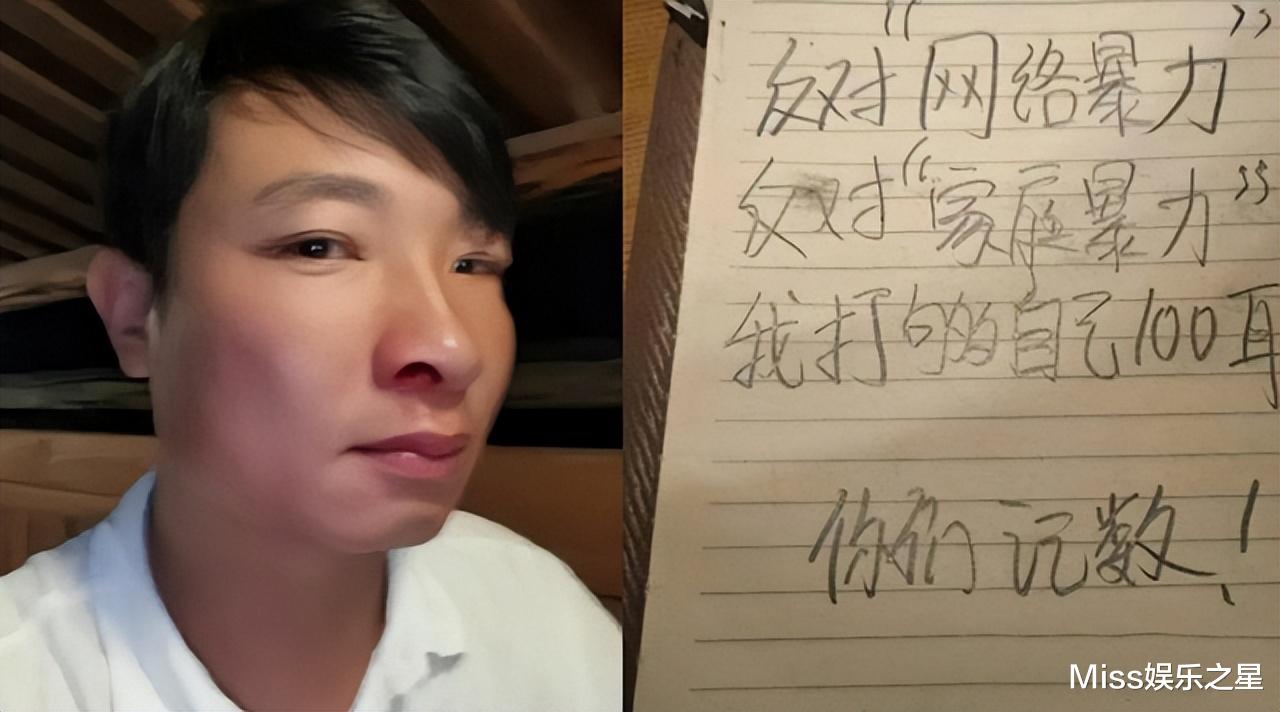 反对“网络暴力”
反对“家庭暴力”
我打够自己100耳
你们记数！
Miss娱乐之星